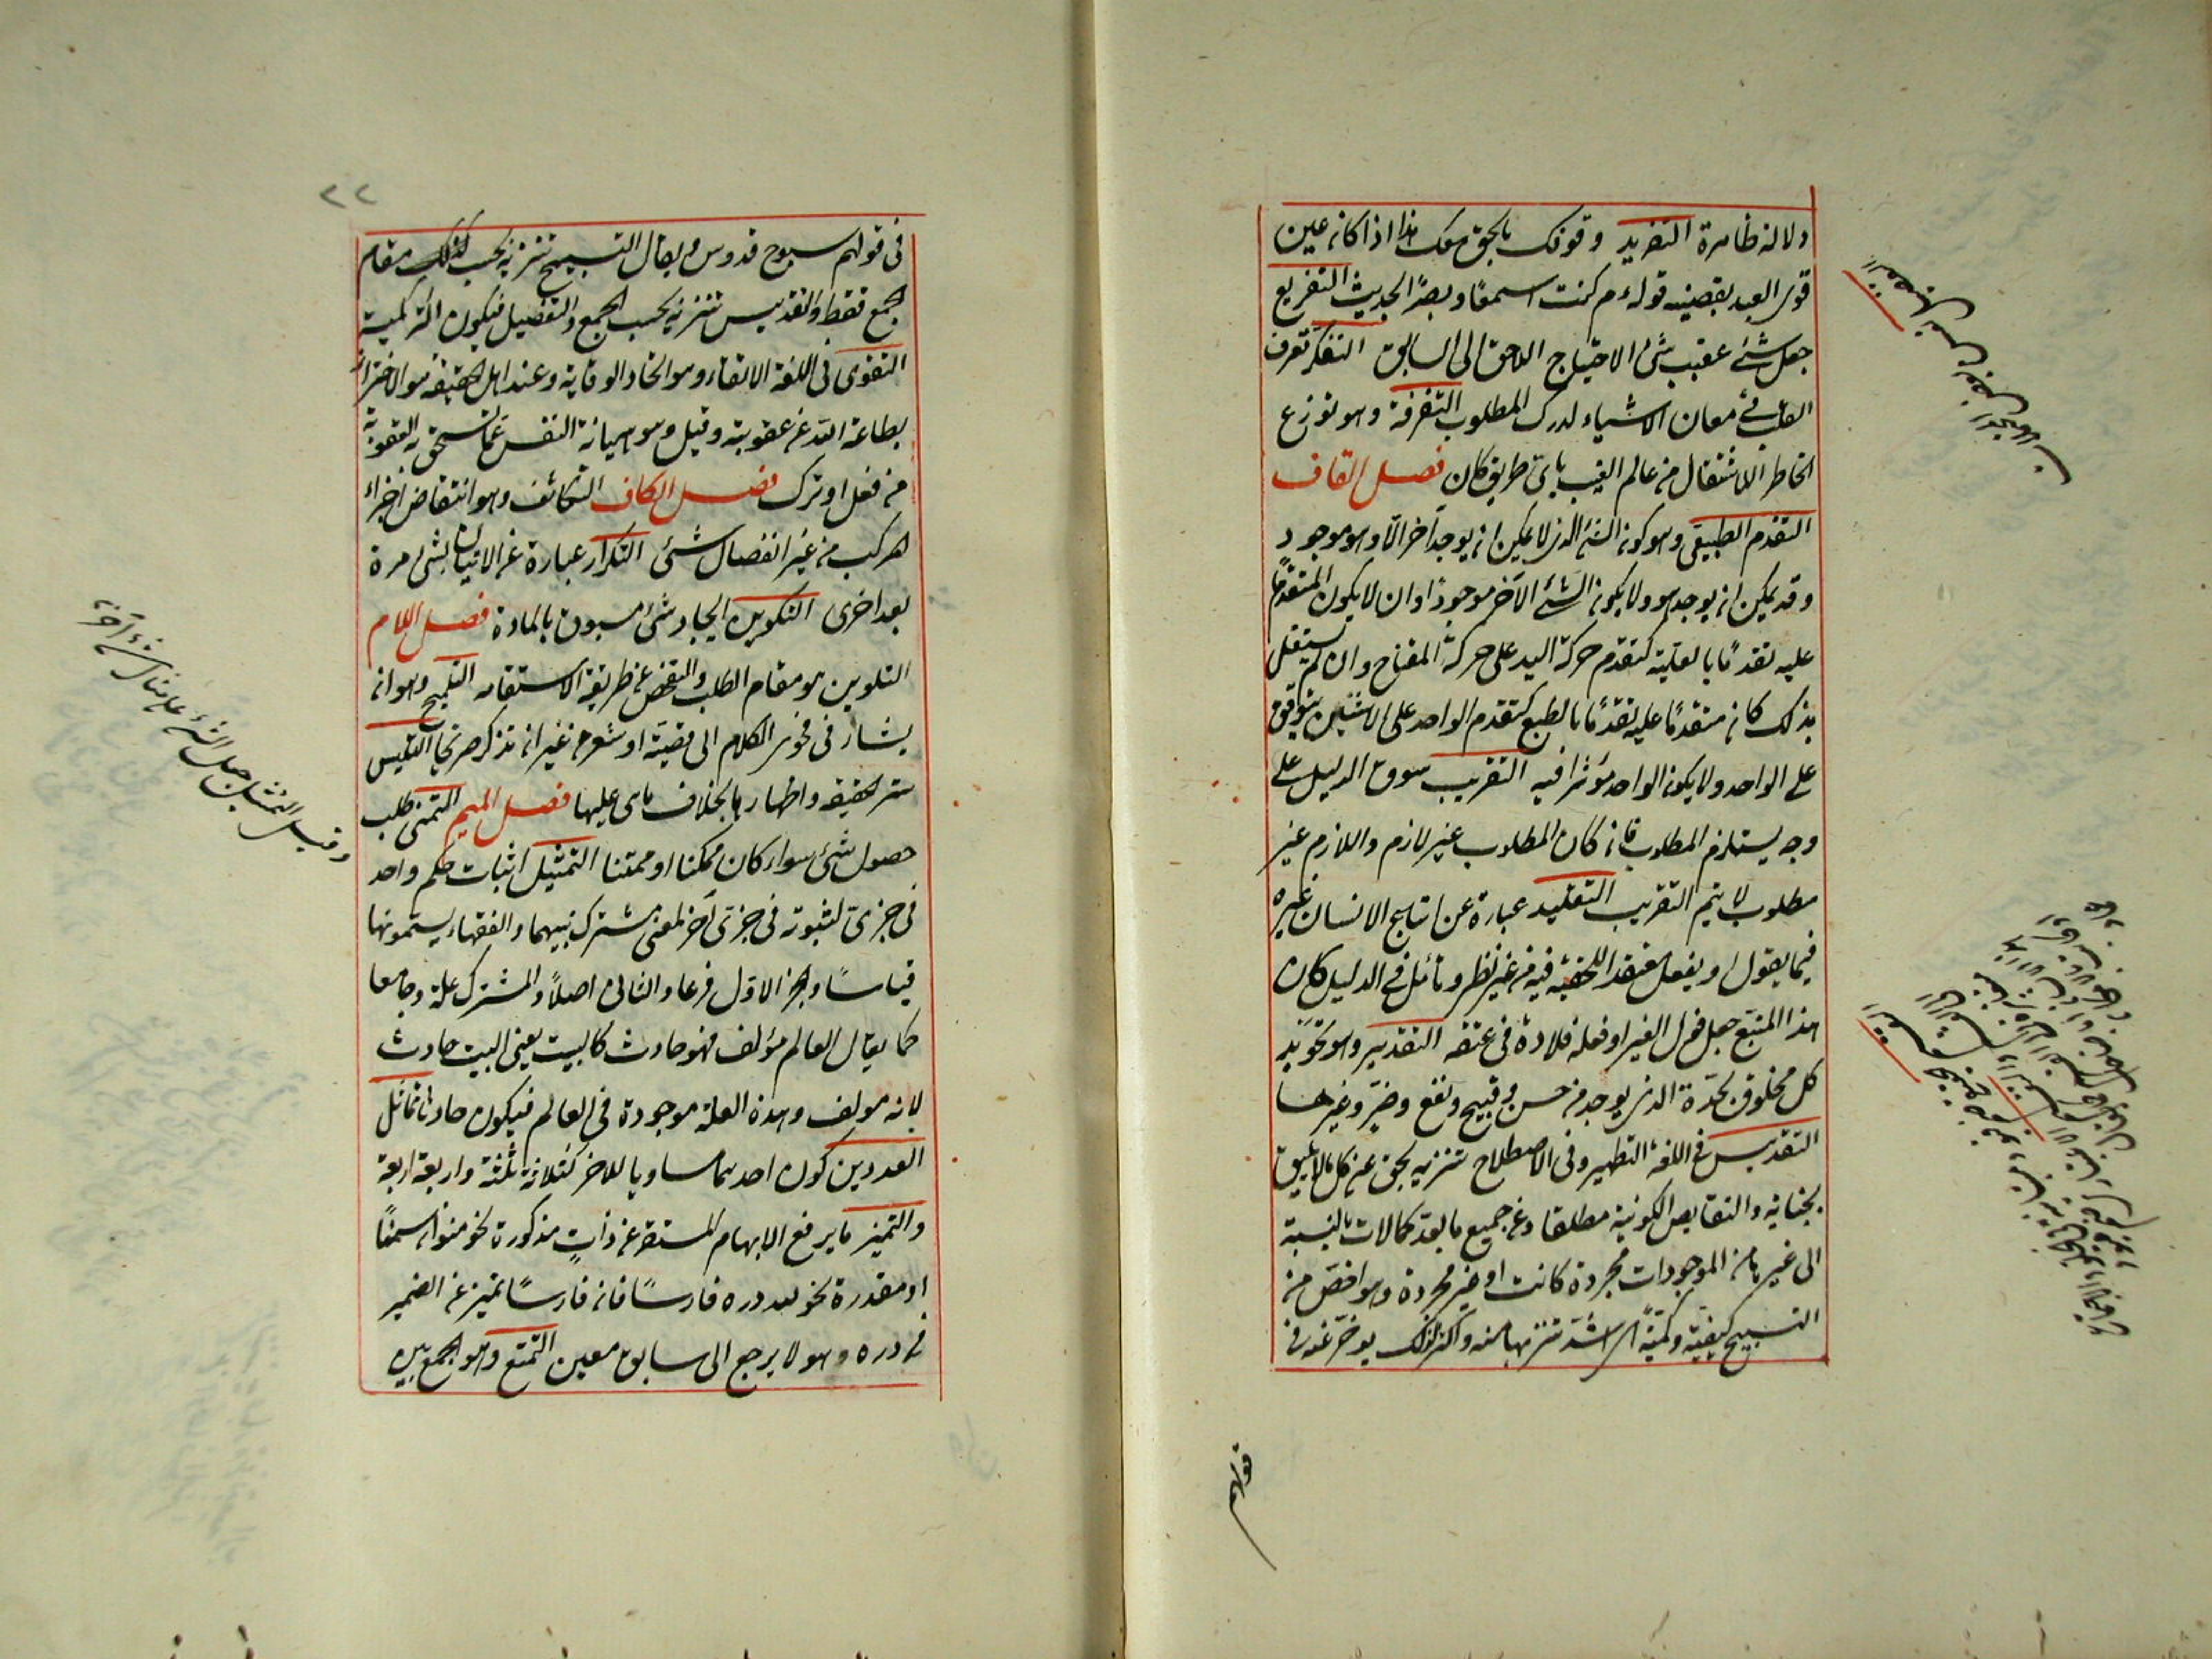 دلالة ظاهرة التفريد وقوفك بالحق معك هذا اذا كان عين
قوى العبد بقضية قوله ءم كنت له سمعًا وبصرًا الحديث التفريع
جعل شئ عقيب شئ لاحتياج اللاحق الى السابق التفكر تصرف
القلب فى معان الاشياء لدرك المطلوب التفرقة وهو توزع
الخاطر للاشتغال من عالم الغيب باى طريق كان فصل القاف
التقدم الطبيعى وهو كون الشئ الذى لا يمكن ان يوجد آخر الا وهو موجود
وقد يمكن ان يوجد هو ولا يكون الشئ الآخر موجودًا وان لا يكون المتقدم علة
عليه تقدمًا بالعلية كتقدم حركة اليد على حركة المفتاح وان لم يستقل
بذلك كان متقدمًا عليه تقدمًا بالطبع كتقدم الواحد على الاثنين يتوقف
على الواحد ولا يكون الواحد مؤثرا فيه التقريب سوق الدليل على
وجه يستلزم المطلوب فان كان المطلوب غير لازم واللازم غير
مطلوب لا يتم التقريب التقليد عبارة عن اتباع الانسان غيره
فيما يقول او يفعل معتقدا للحقيّة فيه من غير نظر وتأمل فى الدليل كان
هذا المتبع جعل قول الغير او فعله قلادة فى عنقه التقدير وهو تحديد
كل مخلوق بحدّه الذى يوجد من حسن وقبيح ونفع وضرّ وغيرهما
التقديس فى اللغة التطهير وفى الاصطلاح تنزيه الحق عن كل ما لا يليق
بجنابه والنقايص الكونية مطلقا وعن جميع ما يعد كمالات بالنسبة
الى غيره من الموجودات مجردة كانت او غير مجردة وهو اخص من
التسبيح كيفية وكمّيّة اى اشدّ تنزيها منه واكثر لذلك يؤخر عنه فى
قولهم
٢٢
فى قولهم سبوح قدوس ويقال التسبيح تنزيه بحسب مقام
الجمع فقط والتقديس تنزيه بحسب الجمع والتفصيل فيكون اكثر كمية
التقوى فى اللغة الاتقاء وهو اتخاذ الوقاية وعند اهل الحقيقة هو الاحتراز
بطاعة الله عن عقوبته وقيل وهو صيانة النفس عما تستحق به العقوبة
من فعل او ترك فصل الكاف التكاثف وهو انتقاض اجزاء
المركب من غير انفصال شئ التكرار عبارة عن الاتيان بشئ مرة
بعد اخرى التكوين ايجاد شئ مسبوق بالمادة فصل اللام
التلوين هو مقام الطلب والتفحص عن طريق الاستقامه التلميح وهو ان
يشار فى فحوى الكلام الى قصّة او شعر من غير ان تذكر صريحا التلبيس
ستر الحقيقة واظهارها بالخلاف ما هى عليها فصل الميم التمنى طلب
حصول شئ سواء كان ممكنا او ممتنعا التمثيل اثبات حكم واحد
فى جزئى لثبوته فى جزئى آخر لمعنى مشترك بينهما والفقهاء يسمّونها
قياسًا والجزئى الاول فرعا والثانى اصلاً والمشترك علة وجامعا
كما يقال العالم مؤلف فهو حادث كالبيت يعنى البيت حادث
لانه مؤلف وهذه العلة موجودة فى العالم فيكون حادثا تماثل
العددين كون احدهما مساويا للاخر كثلاثة ثلثة واربعة اربعة
والتميز ما يرفع الابهام المستقر عن ذاتٍ مذكورة نحو منوان سمنًا
او مقدرة نحو لله دره فارسًا فان فارسًا تميز عن الضمير
فى دره وهو لا يرجع الى سابق معين التمتع وهو الجمع بين
وقيل التمثيل جعل الشئ على مثال شئ آخر